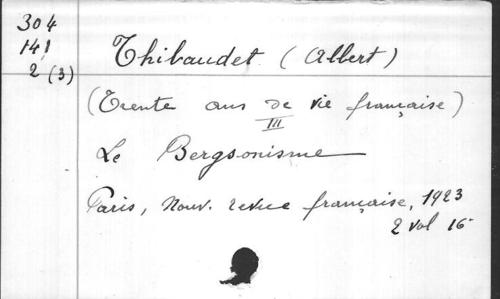 304
141
2 (3)
Thibaudet (Albert)
(Trente ans de vie française)
III
Le Bergsonisme
Paris, Nouv. revue française, 1923
2 vol 16-